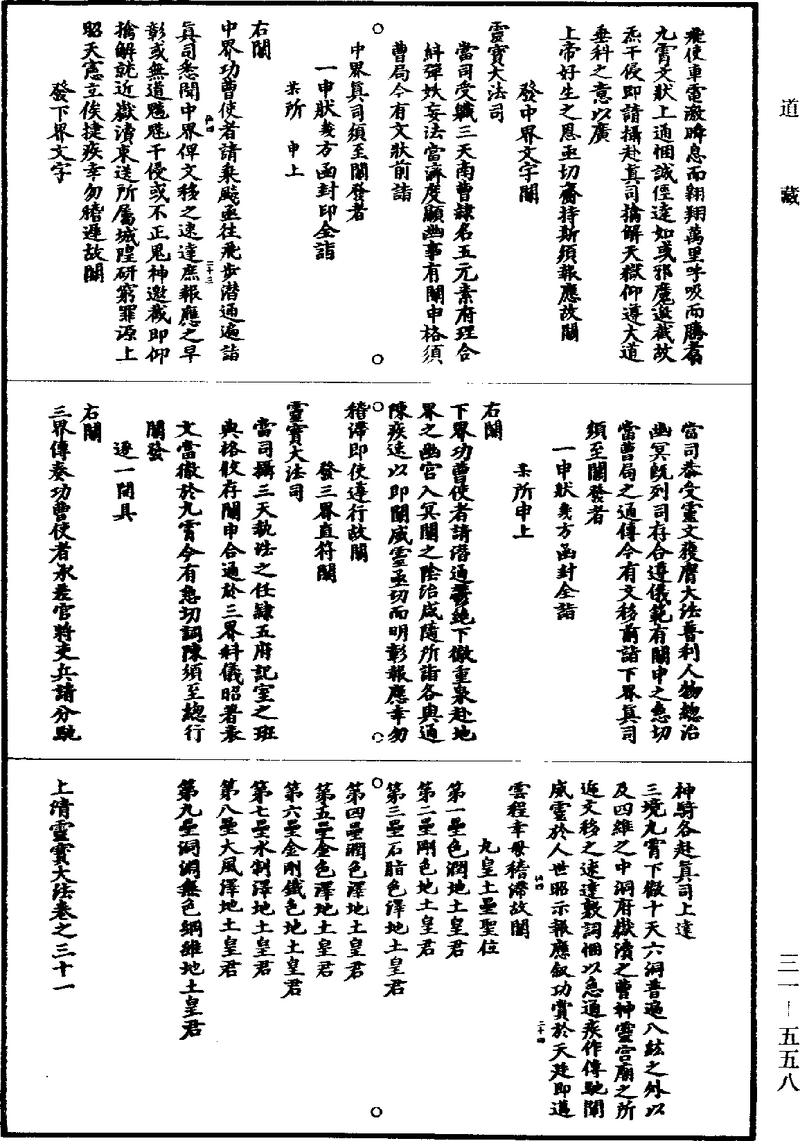 道藏
飛使車電激瞬息而翱翔萬里呼吸而騰翥
九霄文狀上通悃誠徑達如或邪魔遮截故
炁干侵即請攝赴真司擒解天獄仰遵大道
垂科之意以廣
上帝好生之恩亟切齎持斯須報應故關
發中界文字關
靈寶大法司
當司受職三天南曹隸名五元素府理合
糾彈妖妄法當濟度顯幽事有關申格須
曹局今有文狀前詣
中界真司須至關發者
一申狀幾方函封印全詣
某所 申上
右關
中界功曹使者請乘飈亟往飛步潛通遍詣
真司悉聞中界俾文移之速達庶報應之早
彰或無道魍魎干侵或不正鬼神邀截即仰
擒解就近嶽瀆東送所屬城隍研窮罪源上
昭天憲立俟捷疾幸勿稽遲故關
發下界文字
當司恭受靈文獲膺大法普利人物總治
幽冥既列司存合遵儀範有關申之急切
當曹局之通傳今有文移前詣下界真司
須至關發者
一申狀幾方函封全詣
某所申上
右關
下界功曹使者請潛通鬱絕下徹重泉赴地
界之幽宮入冥關之陰治咸隨所詣各與通
陳疾速以即關威靈亟切而明彰報應幸勿
稽滯即使遵行故關
發三界直符關
靈寶大法司
當司攝三天執法之任隸五府記室之班
與格攸存關申合通於三界科儀昭著表
文當徹於九霄今有急切詞陳須至總行
關發
逐一開具
右關
三界傳奏功曹使者承差官將吏兵請分馳
神騎各赴真司上達
三境九霄下徹十天六洞普遍八紘之外以
及四維之中洞府嶽瀆之曹神靈宮廟之所
迩文移之速達敷詞悃以急通疾作傳馳關
威靈於人世昭示報應敘功賞於天廷即遵
雲程幸毋稽滯故關
九皇土壘聖位
第一壘色潤地土皇君
第二壘剛色地土皇君
第三壘石脂色澤地土皇君
第四壘潤色澤地土皇君
第五壘金色澤地土皇君
第六壘金剛鐵色地土皇君
第七壘水制澤地土皇君
第八壘大風澤地土皇君
第九壘洞洞無色綱維地土皇君
上清靈寶大法卷之三十一
三一－五五八